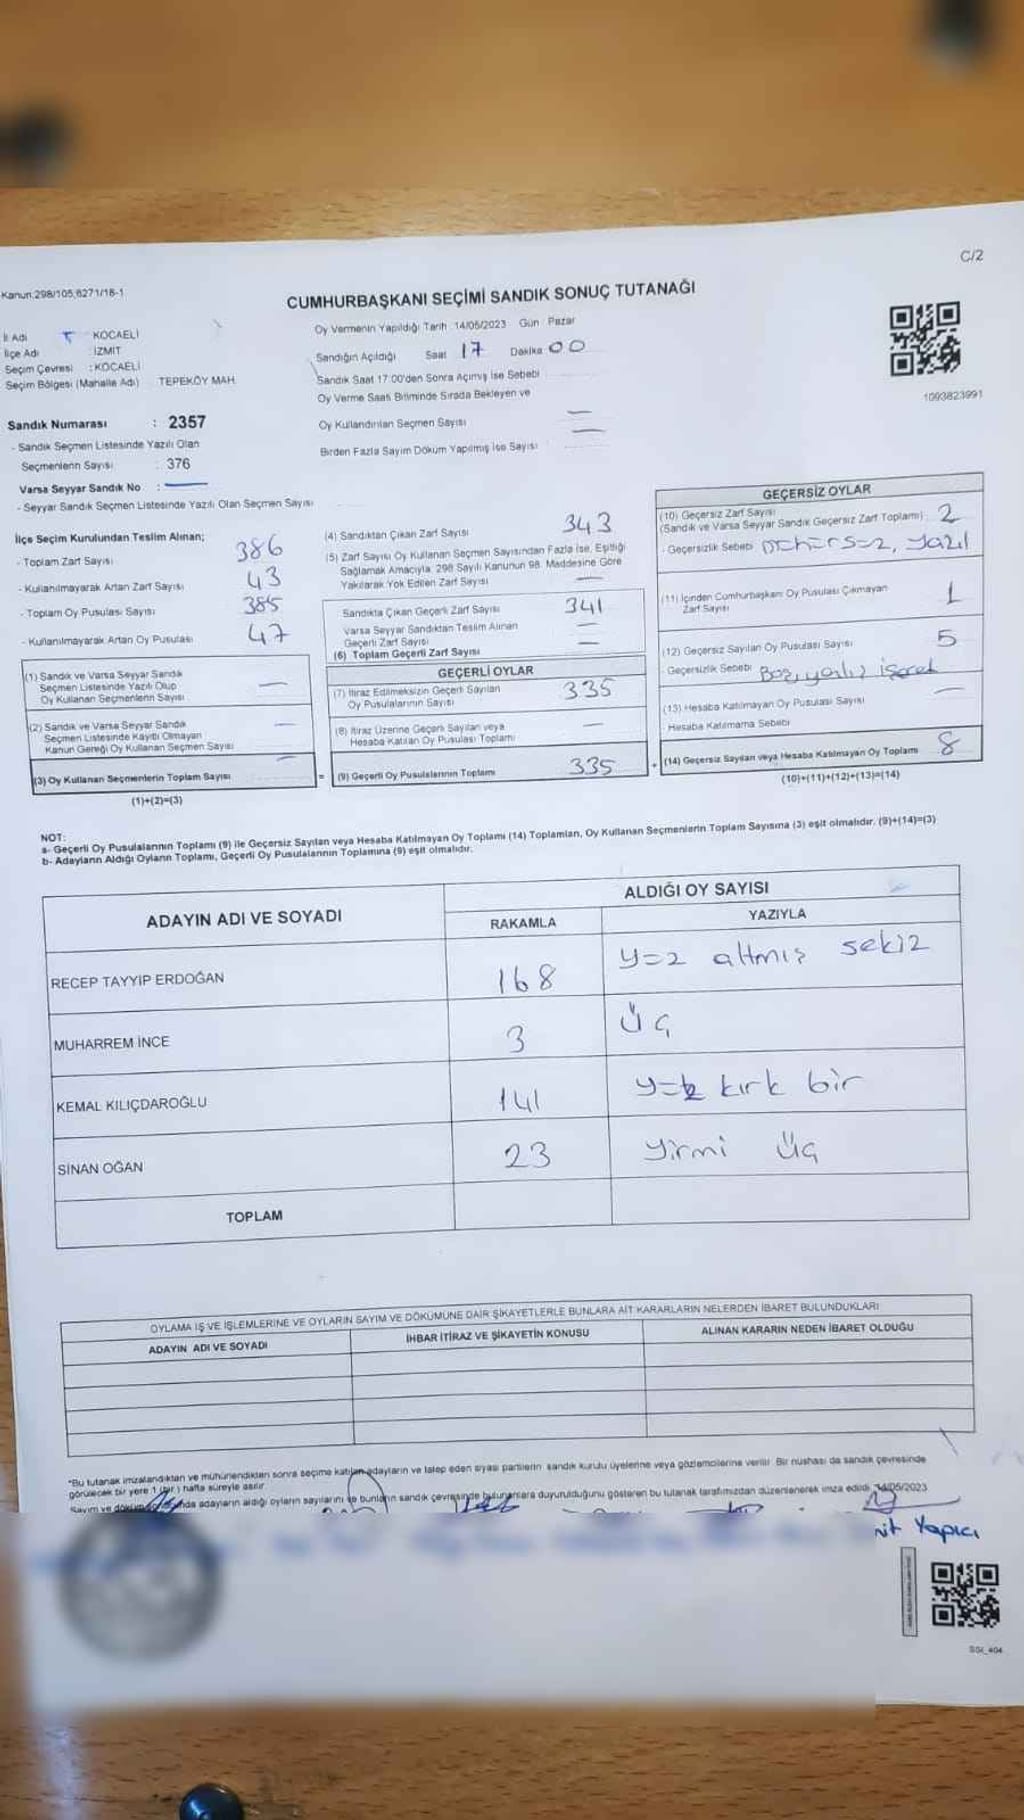 C/2
Kanun:298/105,6271/18-1
CUMHURBAŞKANI SEÇİMİ SANDIK SONUÇ TUTANAĞI
İl Adı KOCAELİ
İlçe Adı İZMİT
Seçim Çevresi : KOCAELİ
Seçim Bölgesi (Mahalle Adı) TEPEKÖY MAH.
Sandık Numarası : 2357
- Sandık Seçmen Listesinde Yazılı Olan
Seçmenlerin Sayısı : 376
Varsa Seyyar Sandık No :
- Seyyar Sandık Seçmen Listesinde Yazılı Olan Seçmen Sayısı
Oy Vermenin Yapıldığı Tarih 14/05/2023 Gün Pazar
Sandığın Açıldığı Saat 17 Dakika 00
Sandık Saat 17:00'den Sonra Açılmış İse Sebebi
Oy Verme Saati Bitiminde Sırada Bekleyen ve
Oy Kullandırılan Seçmen Sayısı
Birden Fazla Sayım Döküm Yapılmış İse Sayısı
1093823991
İlçe Seçim Kurulundan Teslim Alınan;
- Toplam Zarf Sayısı 386
- Kullanılmayarak Artan Zarf Sayısı 43
- Toplam Oy Pusulası Sayısı 385
- Kullanılmayarak Artan Oy Pusulası 47
(1) Sandık ve Varsa Seyyar Sandık
Seçmen Listesinde Yazılı Olup
Oy Kullanan Seçmenlerin Sayısı
(2) Sandık ve Varsa Seyyar Sandık
Seçmen Listesinde Kayıtlı Olmayan
Kanun Gereği Oy Kullanan Seçmen Sayısı
(3) Oy Kullanan Seçmenlerin Toplam Sayısı
(1)+(2)=(3)
(4) Sandıktan Çıkan Zarf Sayısı 343
(5) Zarf Sayısı Oy Kullanan Seçmen Sayısından Fazla İse, Eşitliği
Sağlamak Amacıyla 298 Sayılı Kanunun 98. Maddesine Göre
Yakılarak Yok Edilen Zarf Sayısı
Sandıkta Çıkan Geçerli Zarf Sayısı 341
Varsa Seyyar Sandıktan Teslim Alınan
Geçerli Zarf Sayısı
(6) Toplam Geçerli Zarf Sayısı
GEÇERLİ OYLAR
(7) İtiraz Edilmeksizin Geçerli Sayılan
Oy Pusulalarının Sayısı 335
(8) İtiraz Üzerine Geçerli Sayılan veya
Hesaba Katılan Oy Pusulası Toplamı
= (9) Geçerli Oy Pusulalarının Toplamı 335
GEÇERSİZ OYLAR
(10) Geçersiz Zarf Sayısı
(Sandık ve Varsa Seyyar Sandık Geçersiz Zarf Toplamı) 2
- Geçersizlik Sebebi
(11) İçinden Cumhurbaşkanı Oy Pusulası Çıkmayan
Zarf Sayısı 1
(12) Geçersiz Sayılan Oy Pusulası Sayısı 5
- Geçersizlik Sebebi Boş, yanlız işaret
(13) Hesaba Katılmayan Oy Pusulası Sayısı
- Hesaba Katılmama Sebebi
+ (14) Geçersiz Sayılan veya Hesaba Katılmayan Oy Toplamı 8
(10)+(11)+(12)+(13)=(14)
NOT:
a- Geçerli Oy Pusulalarının Toplamı (9) ile Geçersiz Sayılan veya Hesaba Katılmayan Oy Toplamı (14) Toplamları, Oy Kullanan Seçmenlerin Toplam Sayısına (3) eşit olmalıdır. (9)+(14)=(3)
b- Adayların Aldığı Oyların Toplamı, Geçerli Oy Pusulalarının Toplamına (9) eşit olmalıdır.
ADAYIN ADI VE SOYADI ALDIĞI OY SAYISI
RAKAMLA YAZIYLA
RECEP TAYYİP ERDOĞAN 168 yüz altmış sekiz
MUHARREM İNCE 3 Üç
KEMAL KILIÇDAROĞLU 141 yüz kırk bir
SİNAN OĞAN 23 yirmi üç
TOPLAM
OYLAMA İŞ VE İŞLEMLERİNE VE OYLARIN SAYIM VE DÖKÜMÜNE DAİR ŞİKAYETLERLE BUNLARA AİT KARARLARIN NELERDEN İBARET BULUNDUKLARI
ADAYIN ADI VE SOYADI İHBAR İTİRAZ VE ŞİKAYETİN KONUSU ALINAN KARARIN NEDEN İBARET OLDUĞU
*Bu tutanak imzalandıktan ve mühürlendikten sonra seçime katılan adayların ve talep eden siyasi partilerin sandık kurulu üyelerine veya gözlemcilerine verilir. Bir nüshası da sandık çevresinde
görülecek bir yere 1 (bir) hafta süreyle asılır.
Sayım ve adayların aldığı oyların sayılarını ve bunların sandık çevresinde bulunanlara duyurulduğunu gösteren bu tutanak tarafımızdan düzenlenerek imza edildi. 14/05/2023
Yapıcı